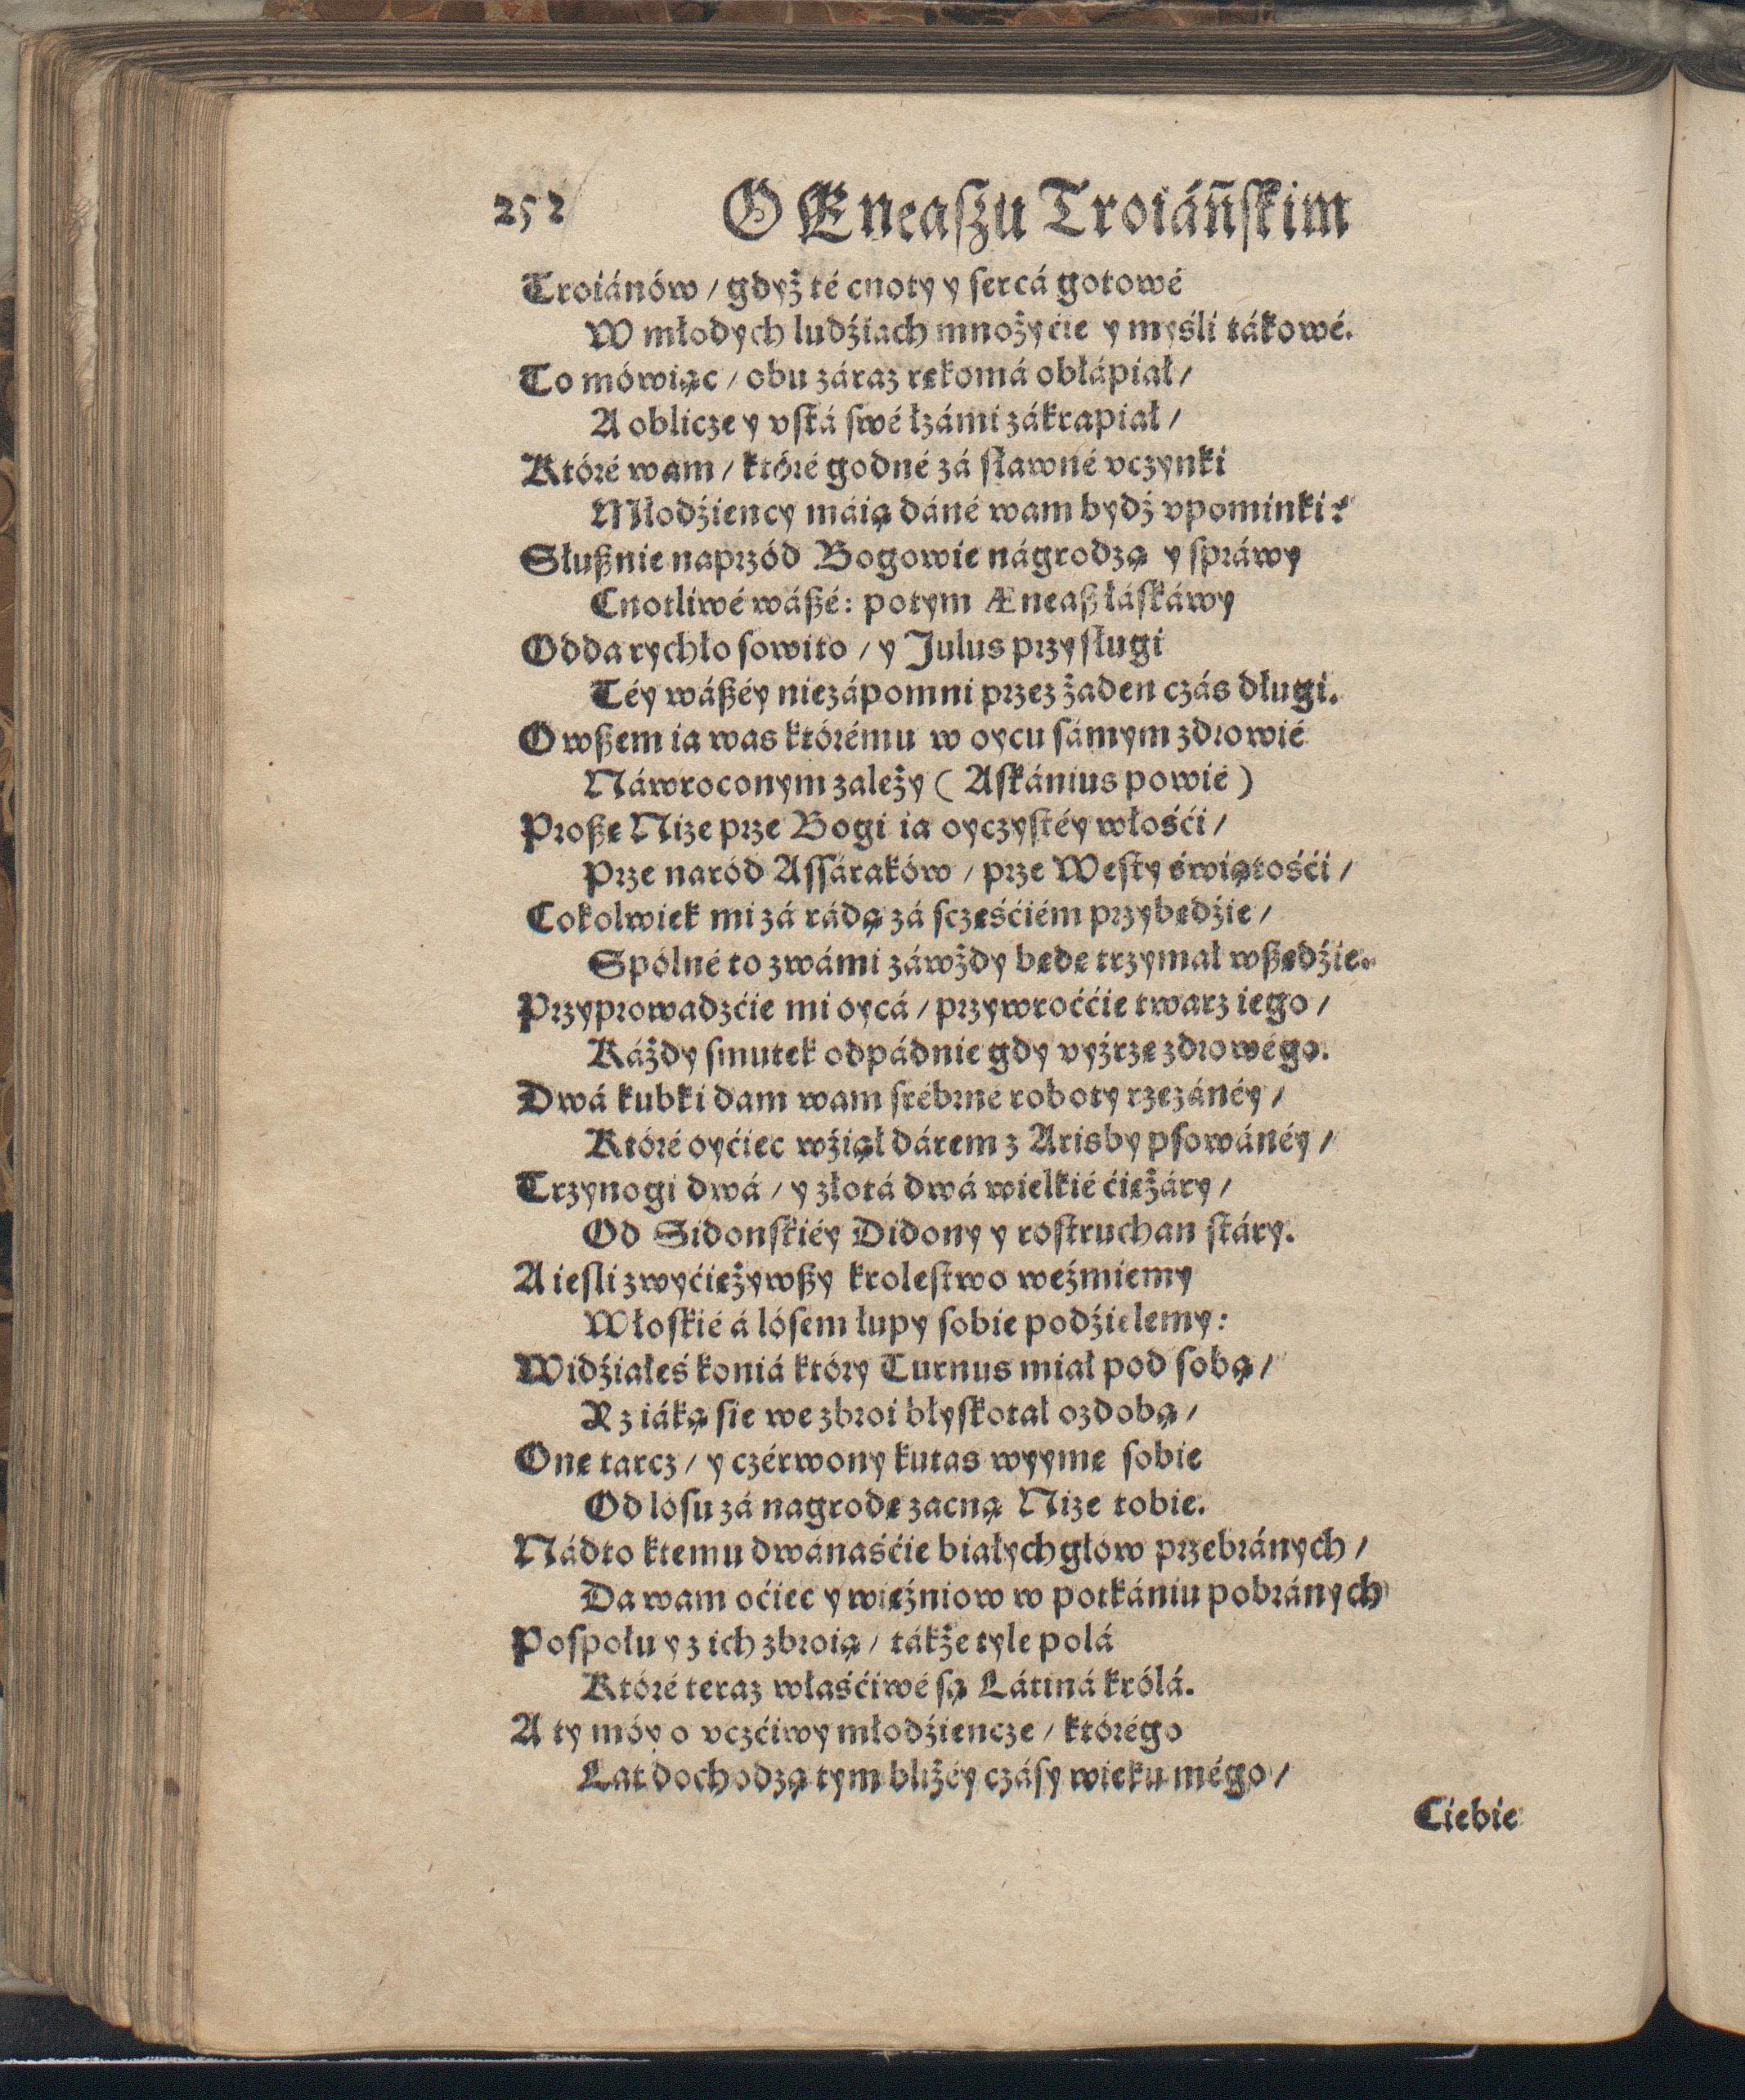 252 O Eneaszu Troiáńskim
Troiánów / gdyż té cnoty y sercá gotowé
W młodych ludźiach mnożyćie y myśli tákowé.
To mówiąc / obu záraz rękomá obłápiał /
A oblicze y vstá swé łzámi zákrapiał /
Któré wam / któré godné zá sławné vczynki
Młodźiency máią dáné wam bydź vpominki?
Słußnie naprzód Bogowie nágrodzą y spráwy
Cnotliwé wáßé: potym Æneaß łáskáwy
Odda rychło sowito / y Julus przysługi
Téy wáßéy niezápomni przez żaden czás długi.
Owßem ia was którému w oycu sámym zdrowié
Náwroconym zależy ( Askánius powié )
Proßę Nize prze Bogi ia oyczystéy włośći /
Prze naród Assáraków / prze Westy świątośći /
Cokolwiek mi zá rádą zá sczęśćiém przybędźie /
Spólné to zwámi záwżdy będę trzymał wßędźie.
Przyprowadzćie mi oycá / przywroććie twarz iego /
Káżdy smutek odpádnie gdy vyźrzę zdrowégo.
Dwá kubki dam wam srébrné roboty rzezánéy /
Któré oyćiec wźiął dárem z Arisby psowánéy /
Trzynogi dwá / y złotá dwá wielkié ćiężáry /
Od Sidonskiéy Didony y rostruchan stáry.
A iesli zwyćiężywßy krolestwo weźmiemy
Włoskié á lósem łupy sobie podźielemy:
Widźiałeś koniá który Turnus miał pod sobą /
Y z iáką sie we zbroi błyskotał ozdobą /
Onę tarcz / y czérwony kutas wyymę sobie
Od lósu zá nagrodę zacną Nize tobie.
Nádto ktemu dwánaśćie białychgłów przebránych /
Da wam oćiec y więźniow w potkániu pobránych
Pospołu y z ich zbroią / tákże tyle polá
Któré teraz właśćiwé są Látiná królá.
A ty móy o vczćiwy młodźiencze / którégo
Lat dochodzą tym bliżéy czásy wieku mégo /
Ciebie